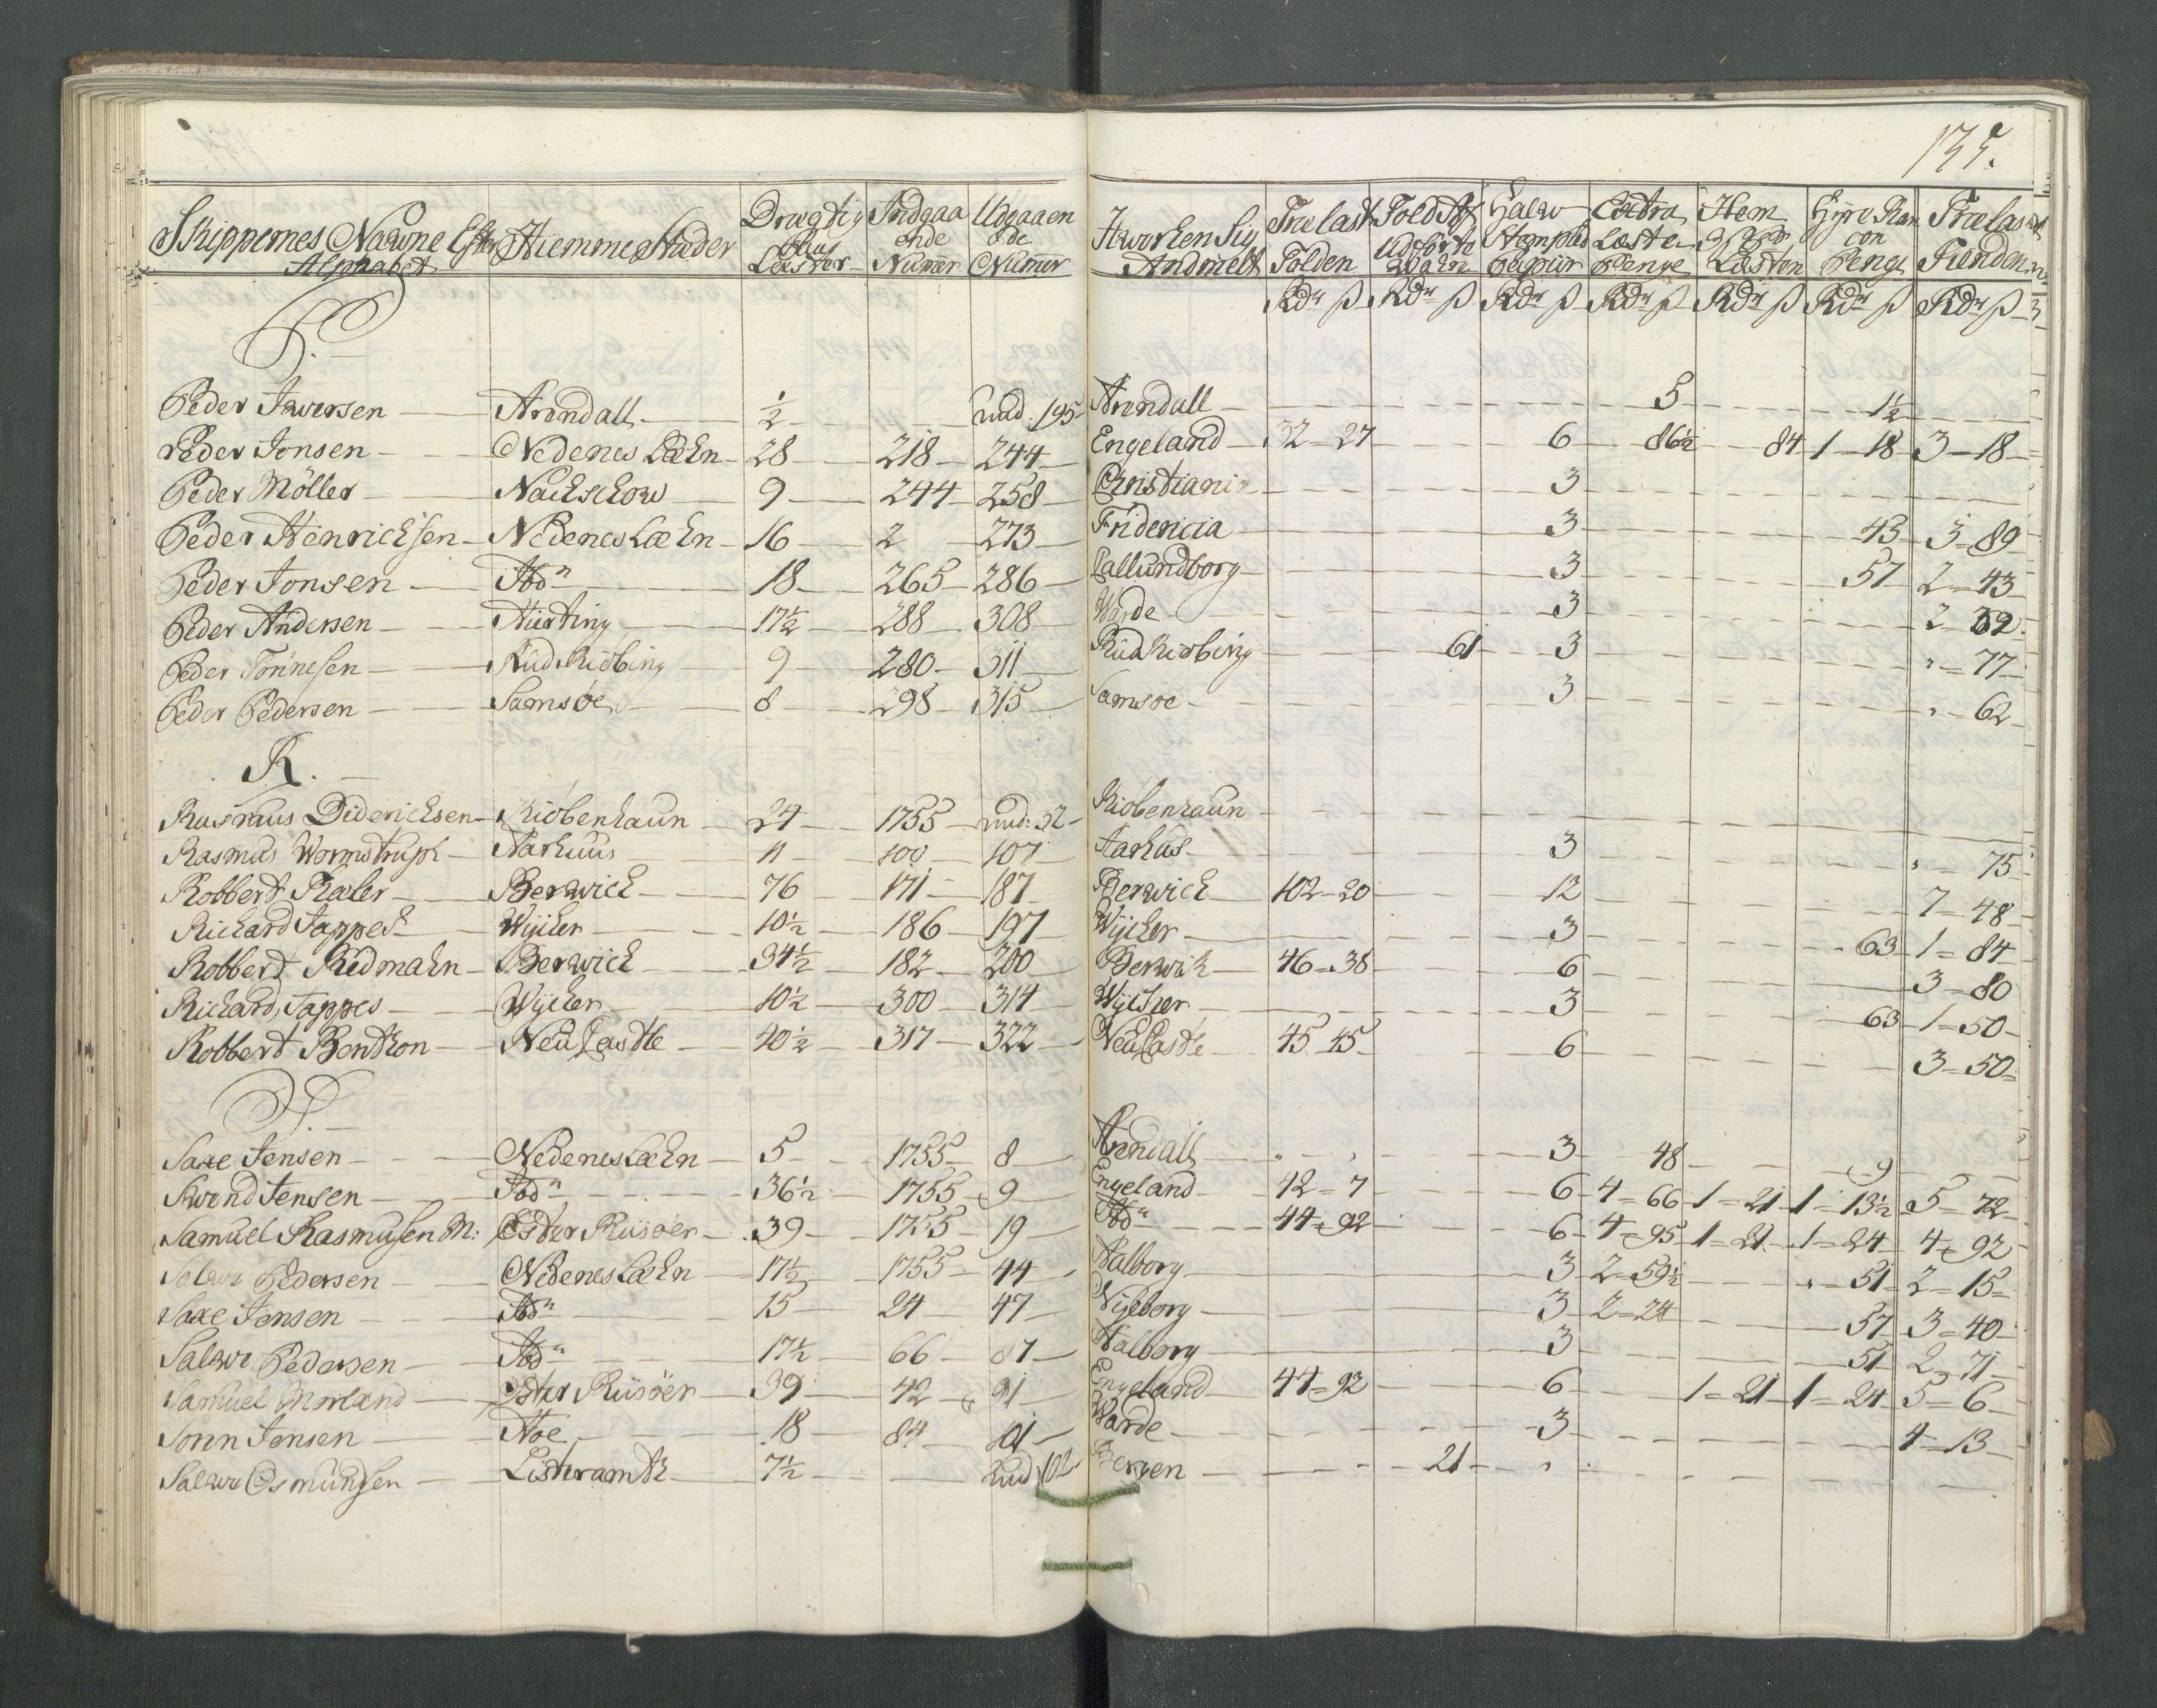 135.
Skippernes Nawne Efter Alphabet | Hiemme Stæder | Drægtig Læster | Indgaa ende Numer | Udgaaen de Numer | Hworhen Sig Andmelt | Trælast Tolden | Told Af Udførte Wahr | Halw Stempled Papiir | Extra Læste Penge | Hem Læsten | Hyre Penge | Trælast Tienden
Rdr ß | Rdr ß | Rdr ß | Rdr ß | Rdr ß | Rdr ß | Rdr ß
P.
Peder Iwersen — Arendall — ½ — und 195 — Arendall — 5 — 1½
Peder Jonsen — Nedenes Læhn — 28 — 218 — 244 — Engeland — 32-27 — 6 — 86½ — 84 — 1-18 — 3-18
Peder Möller — Nachschow — 9 — 244 — 258 — Christiania — 3
Peder Henrichsen — Nedenes Læhn — 16 — 2 — 273 — Fridericia — 3 — 43 — 3=89
Peder Jonsen — Ibdn — 18 — 265 — 286 — Callundborg — 3 — 57 — 2-43
Peder Andersen — Hiirting — 17½ — 288 — 308 — Warde — 3 — 2-39
Peder Tönnesen — Rudkiöbing — 9 — 280 — 311 — Rudkiöbing — 61 — 3 — „=77
Peder Pedersen — Samsöe — 8 — 298 — 315 — Samsoe — 3 — „-62
R.
Rasmus Diderichsen — Kiöbenhaun — 24 — 1755 — und: 32 — Kiöbenhaun
Rasmus Wormstruph — Aarhuus — 11 — 100 — 107 — Aarhus — 3 — „-75
Robbert Kaler — Berwich — 76 — 171 — 187 — Berwich — 102-20 — 12 — 7-48
Richard Tappes — Wijcher — 10½ — 186 — 197 — Wijcher — 3 — 63 — 1=84
Robbert Ridmahn — Berwich — 34½ — 182 — 200 — Berwich — 46=38 — 6 — 3=80
Richard Tappes — Wijcher — 10½ — 300 — 314 — Wijcher — 3 — 63 — 1=50
Robbert Benthon — Neu Castle — 40½ — 317 — 322 — Neu Castle — 45-45 — 6 — 3=50
S.
Saxe Jensen — Nedenes Læhn — 5 — 1755 — 8 — Arendall — 3 — 48 — 9
Swend Jensen — Ibdn — 36½ — 1755 — 9 — Engeland — 42=7 — 6 — 4=66 — 1=21 — 1=13½ — 5=72
Samuel Rasmusen M: — Öster Riisöer — 39 — 1755 — 19 — Ibdn — 44=92 — 6 — 4=95 — 1=21 — 1=24 — 4=92
Salwe Pedersen — Nedenes Læhn — 17½ — 1755 — 44 — Aalborg — 3 — 2=59½ — „=51 — 2=15
Saxe Jensen — Ibdn — 15 — 24 — 47 — Nijeborg — 3 — 2=24 — 57 — 3=40
Salwe Pedersen — Ibdn — 17½ — 66 — 87 — Aalborg — 3 — 51 — 2-71
Samuel Morland — Öster Riisöer — 39 — 42 — 91 — Engeland — 44=92 — 6 — 1=21 — 1=24 — 5=6
Sonn Jensen — Hoe — 18 — 84 — 101 — Warde — 3 — 4-13
Salwe Osmundsen — Listeramth — 7½ — und 102 — Bergen — 21 — „